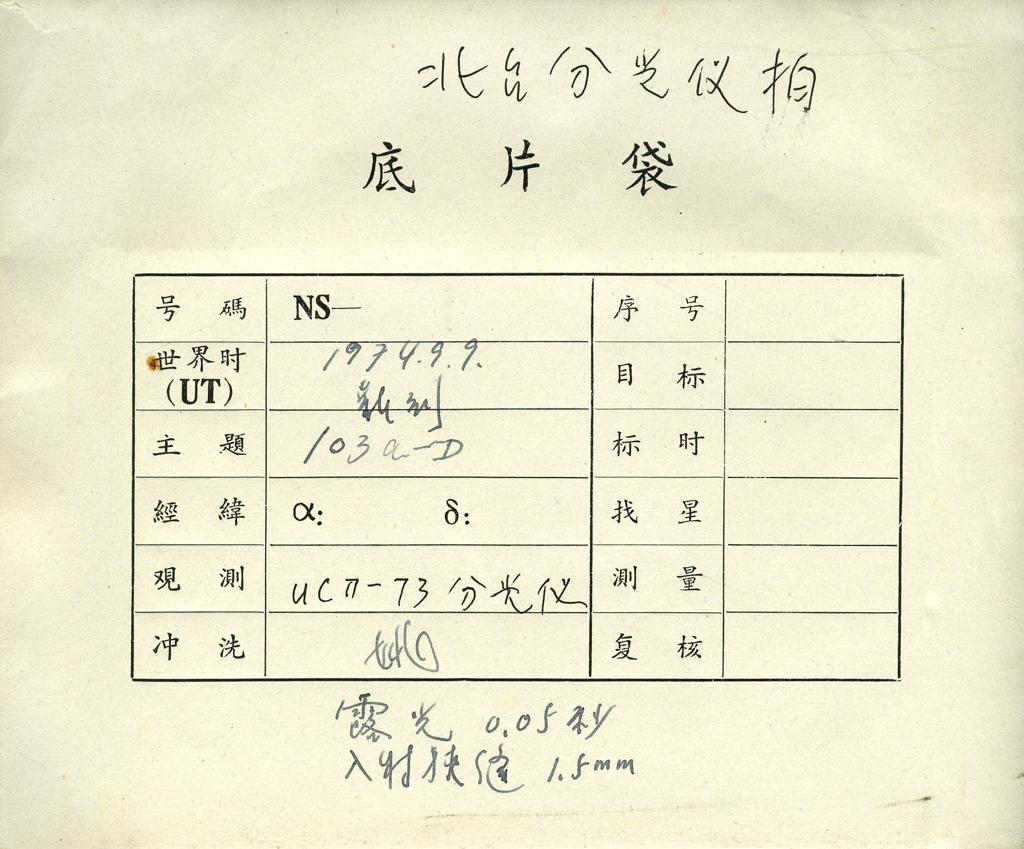 北台分光仪拍
底片袋
号碼 NS— 序号
世界时(UT) 1974.9.9. 目标
主題 103a-D 标时
經緯 α: δ: 找星
观測 UCП-73 分光仪 測量
冲洗 复核
露光 0.05秒
入射狭缝 1.5mm